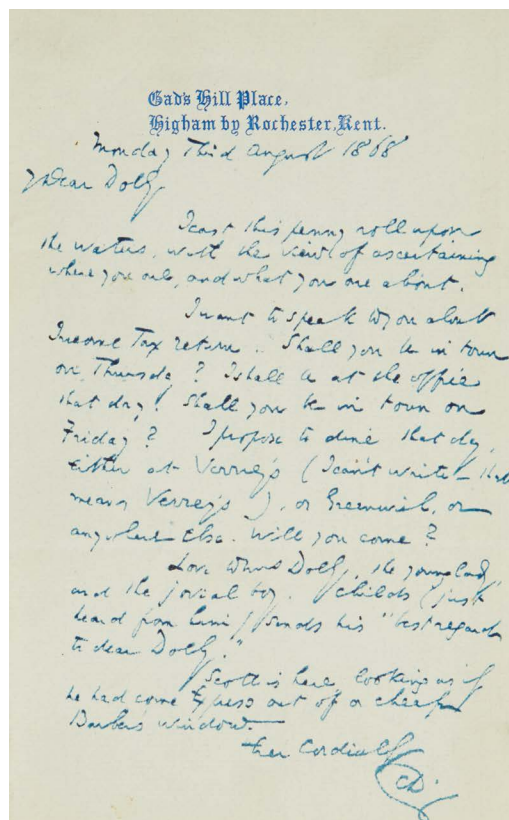 Gad's Hill Place,
Higham by Rochester, Kent.
Monday Third August 1868
My Dear Dolby
I cast this penny roll upon
the waters, with the view of ascertaining
where you are, and what you are about.
I want to speak to you about
Income Tax return. Shall you be in town
on Thursday? I shall be at the office
that day. Shall you be in town on
Friday? I propose to dine that day,
either at Verrey's (I can't write – that
means Verrey's), or Greenwich, or
anywhere else. Will you come?
Love to Mrs Dolby, the young lady,
and the jovial boy. Childs (just
heard from him) sends his "best regards
to dear Dolby."
Scott is here looking as if
he had come express out of a cheap
Barber's window.
Ever Cordially
CD.